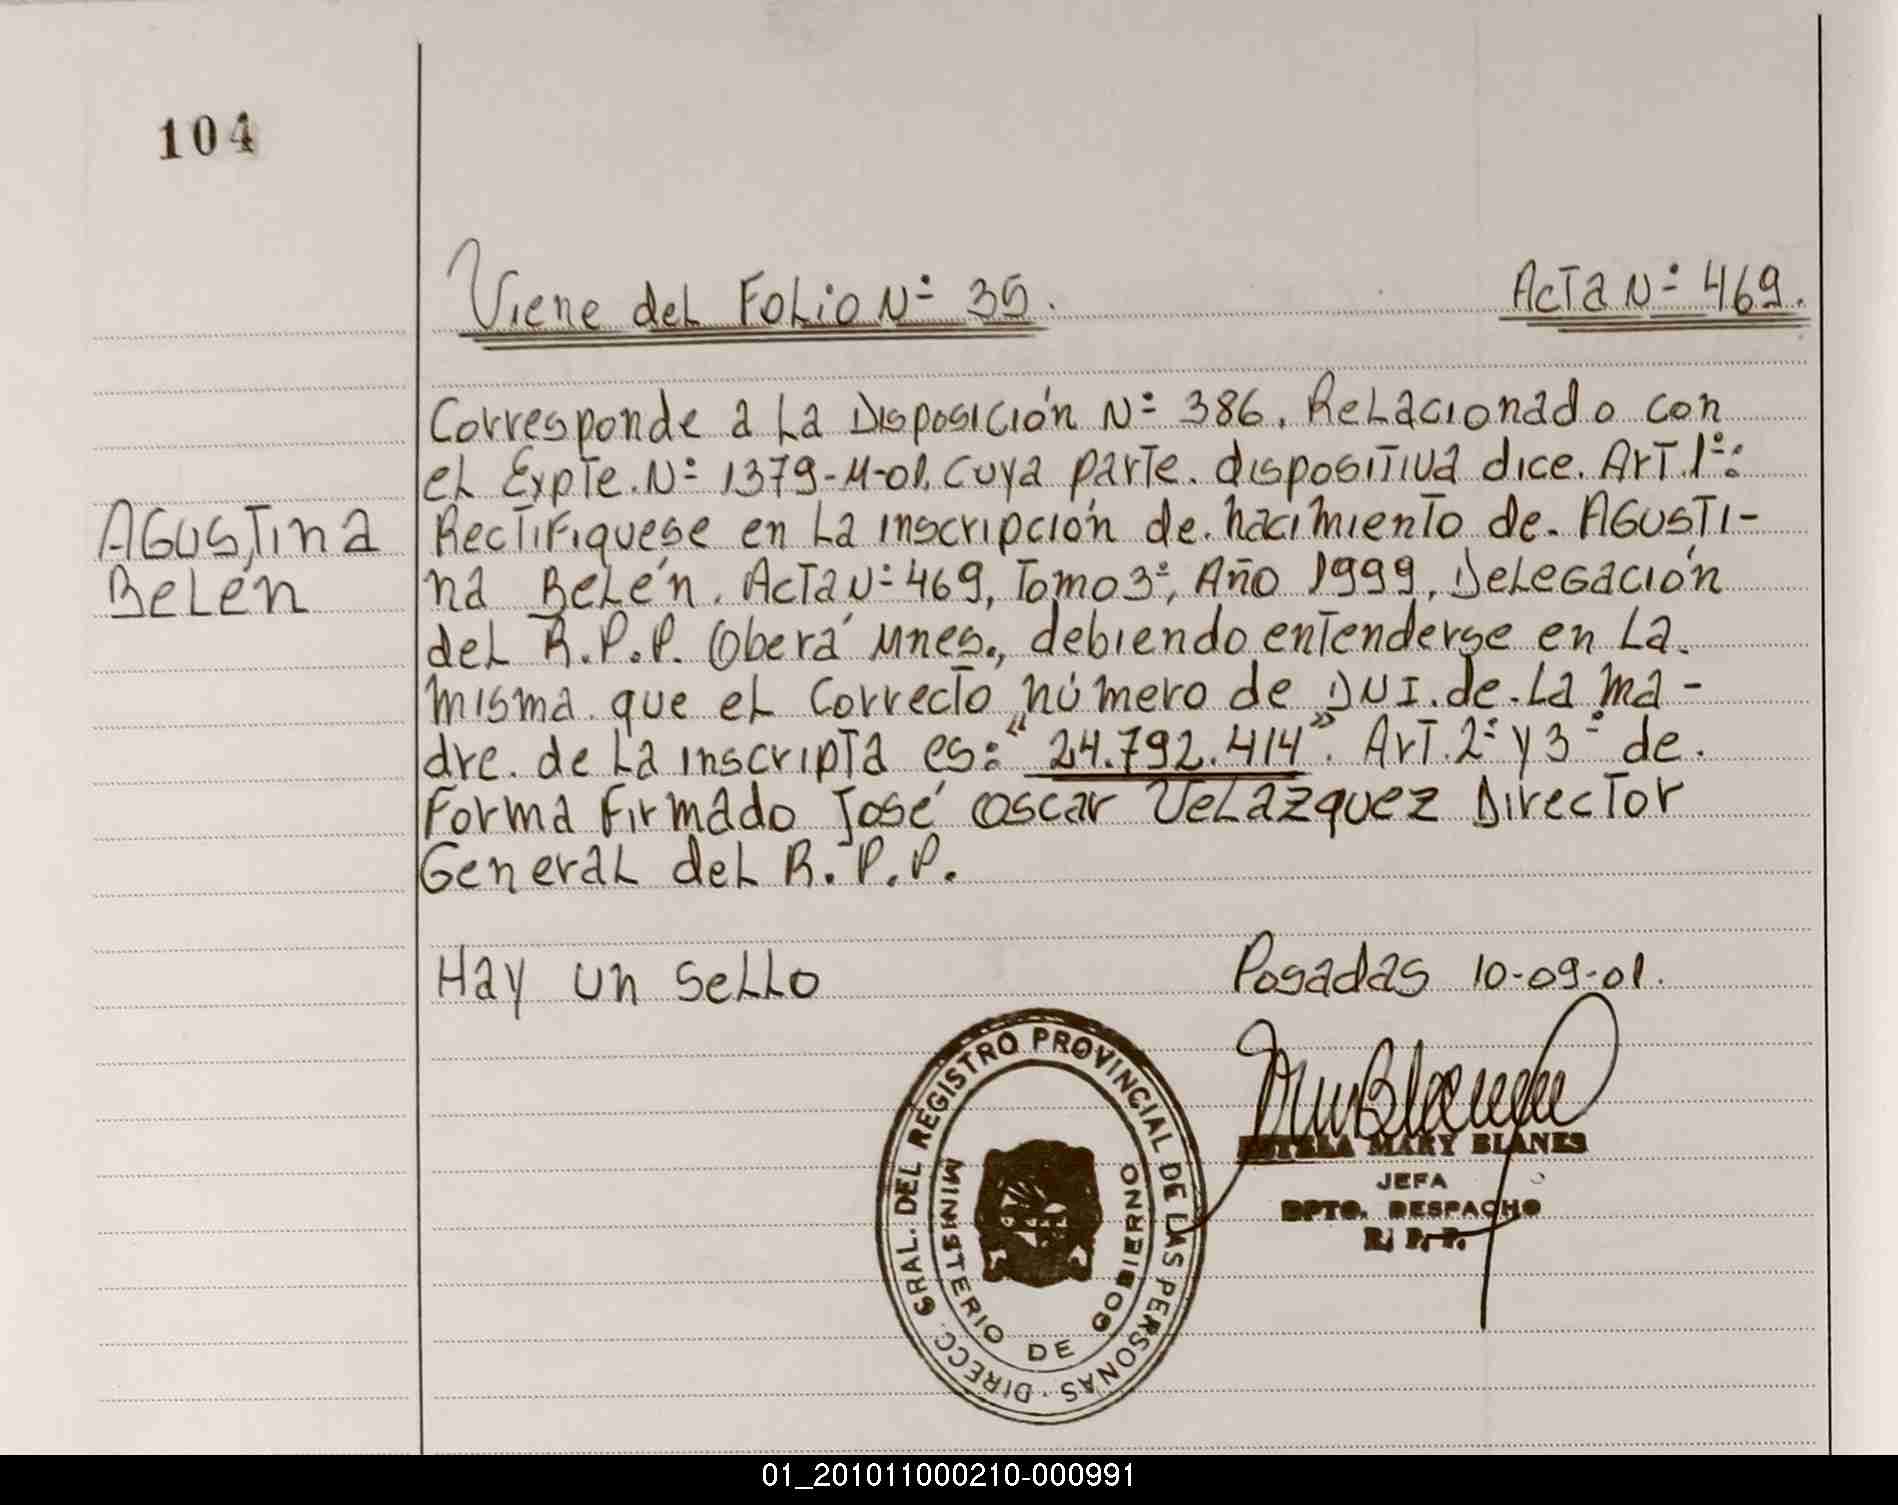 104
Viene del Folio Nº 35.
Acta Nº 469.
Corresponde a la Disposición Nº 386. Relacionado con
el Expte. Nº 1379-M-01. Cuya parte dispositiva dice. Art. 1º:
Rectifiquese en la inscripción de nacimiento de AGUSTI-
na Belén. Acta Nº 469, Tomo 3º, Año 1999, Delegación
del R.P.P. Oberá Mnes., debiendo entenderse en la
misma que el correcto número de DNI. de la ma-
dre de la inscripta es: "24.792.414". Art. 2º y 3º de
forma firmado José Oscar Velazquez Director
General del R.P.P.
Agustina
Belén
Hay un sello
Posadas 10-09-01.
DIRECC. GRAL. DEL REGISTRO PROVINCIAL DE LAS PERSONAS
MINISTERIO DE GOBIERNO
ESTELA MARY BLANES
JEFA
DPTO. DESPACHO
R. P. P.
01_201011000210-000991